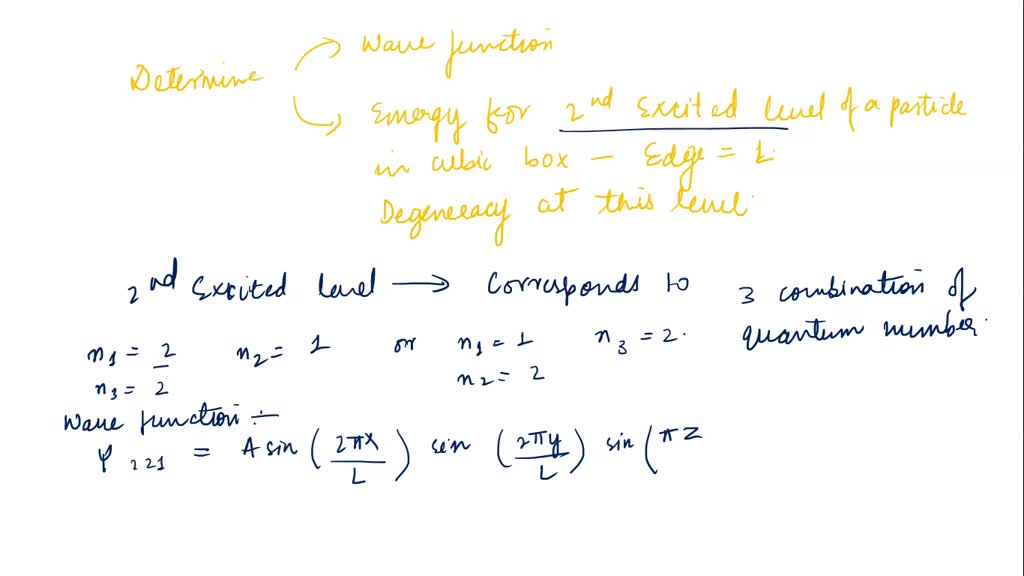 Determine
Wave function
Energy for 2nd Excited level of a particle
in cubic box – Edge = L.
Degeneracy at this level.
2nd Excited level → Corresponds to 3 combination of
quantum number.
n1 = 2 n2 = 1 or n1 = 1 n3 = 2.
n3 = 2 n2 = 2
Wave function :-
φ 221 = A sin (2πx/L) sin (2πy/L) sin (πz